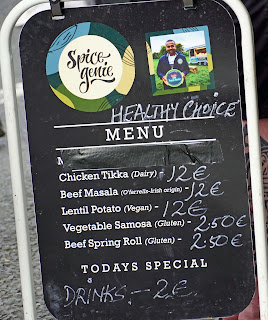 Spice
genie
HEALTHY CHOICE
MENU
Chicken Tikka (Dairy) - 12€
Beef Masala (O'farrells-Irish origin) - 12€
Lentil Potato (Vegan) - 12€
Vegetable Samosa (Gluten) - 2.50€
Beef Spring Roll (Gluten) - 2.50€
TODAYS SPECIAL
DRINKS - 2€